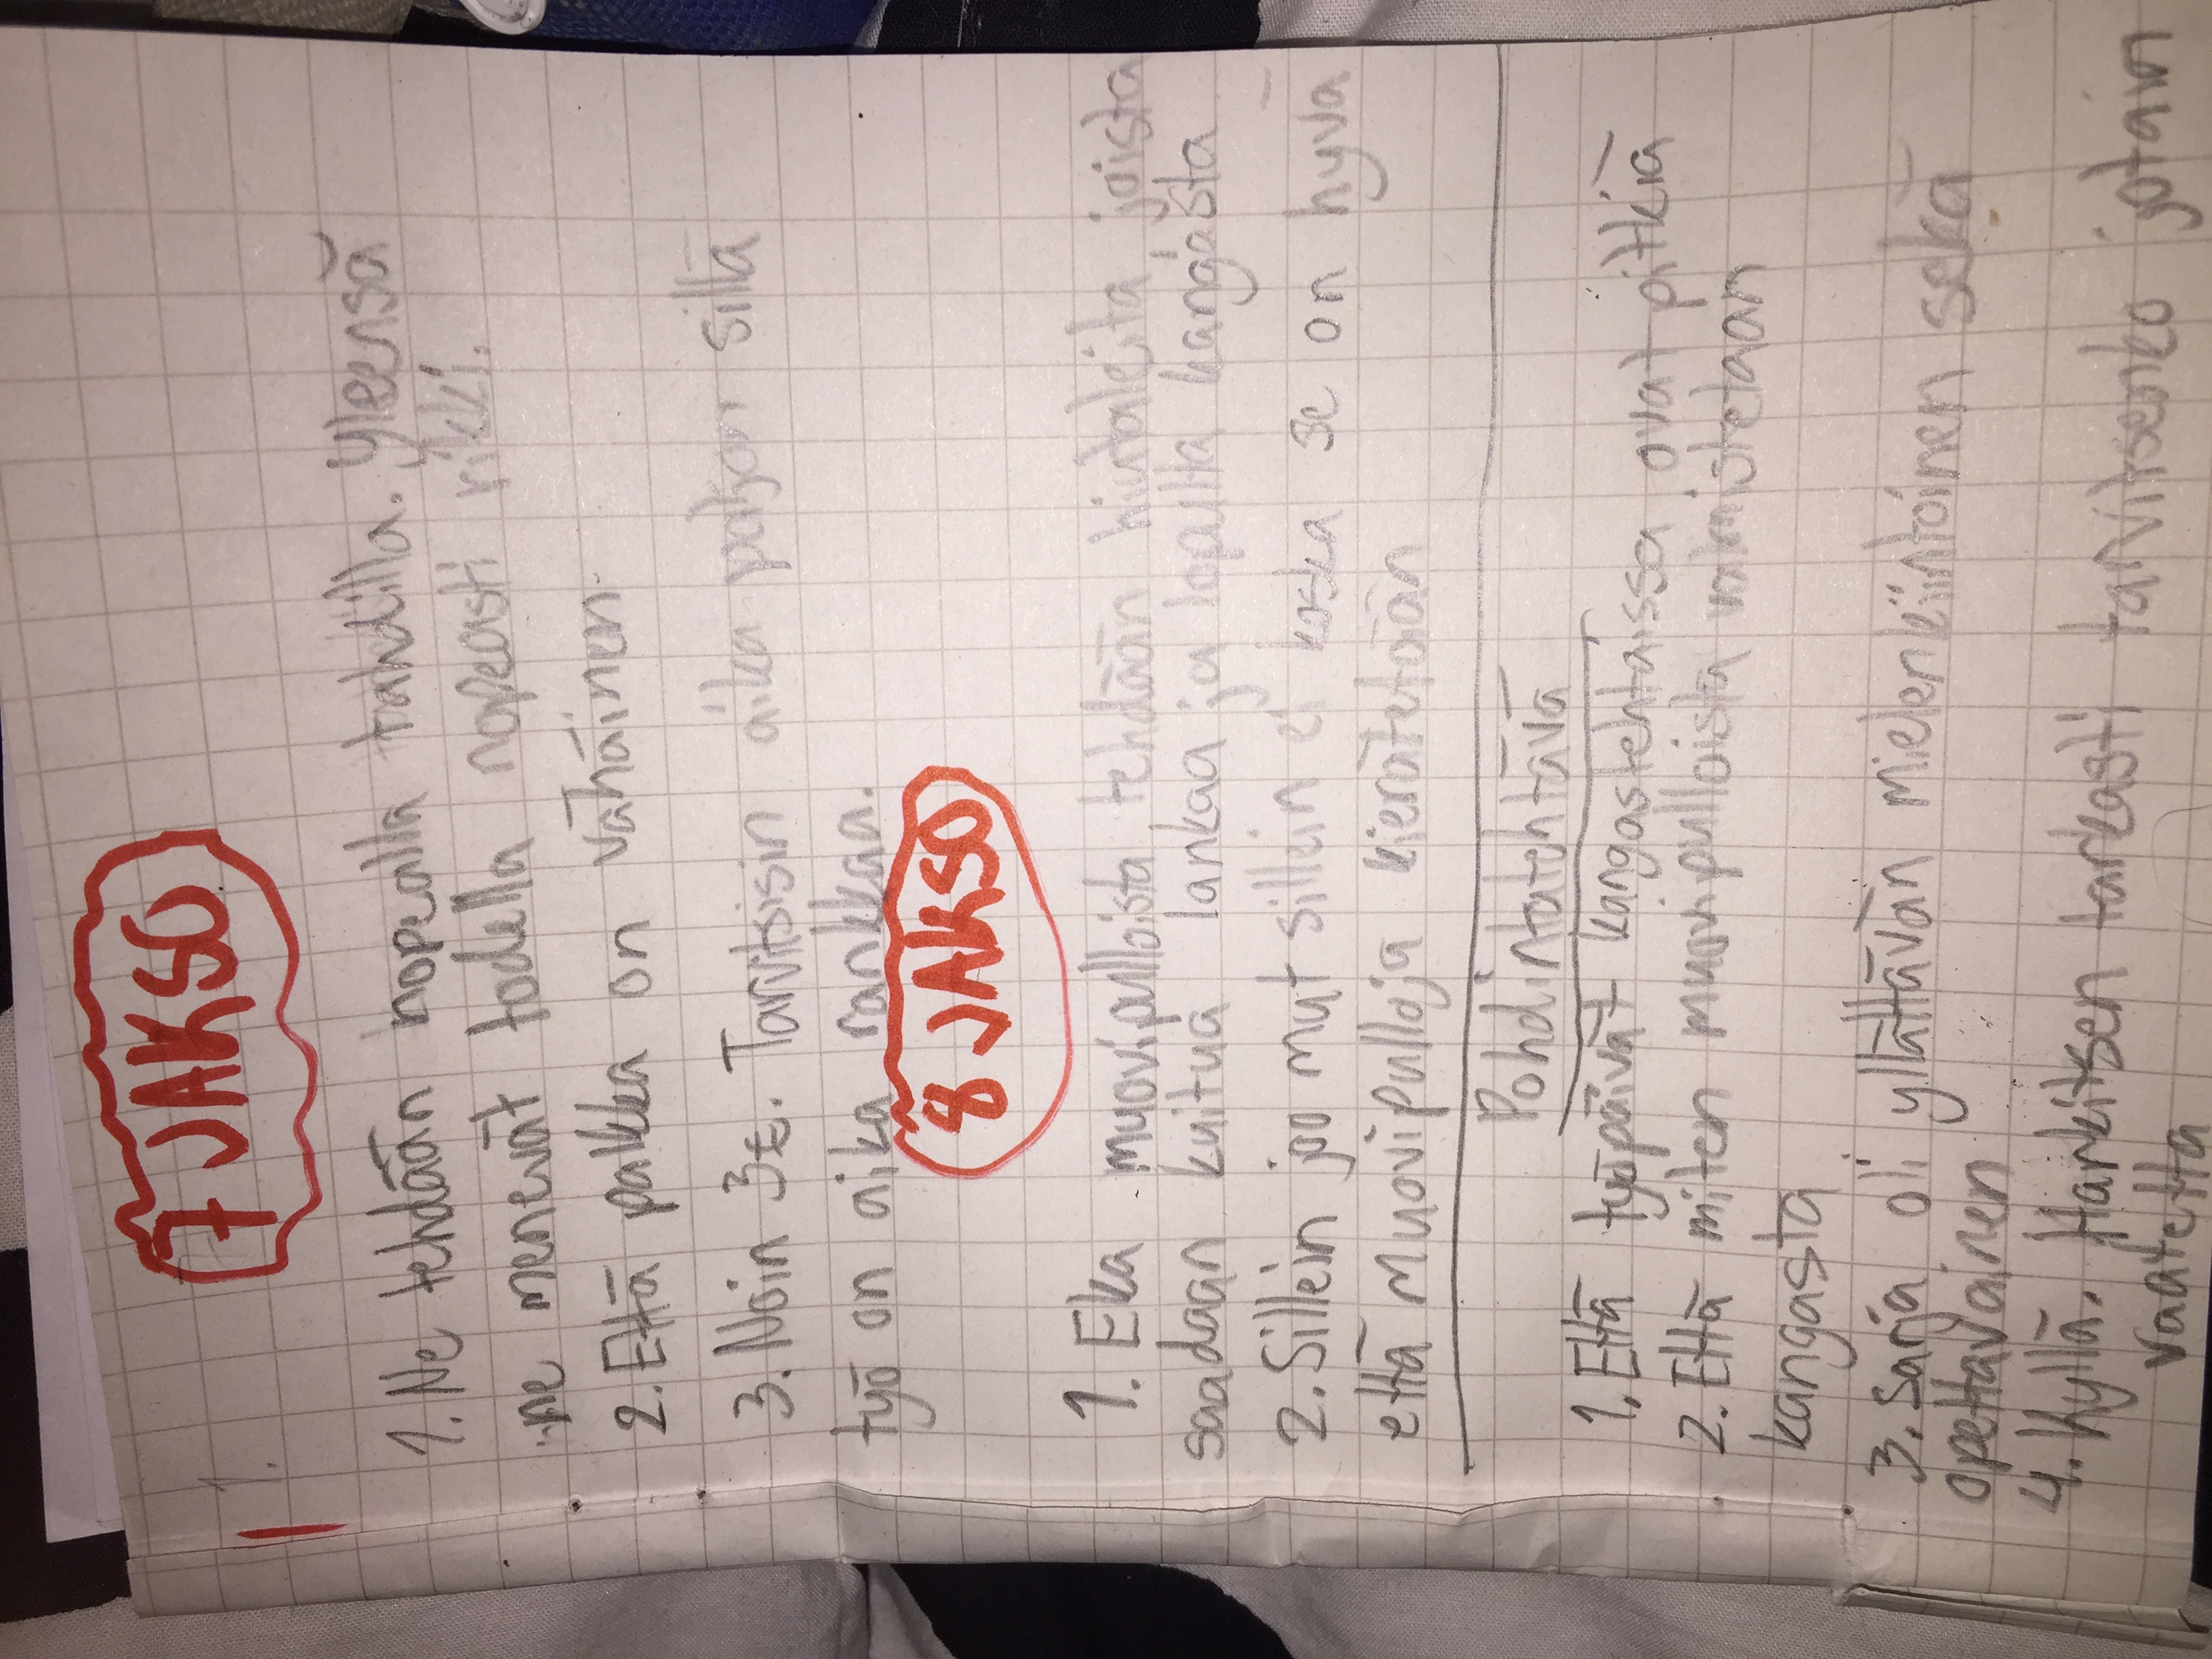 7 JAKSO
1.
1. Ne tehdään nopealla tahdilla. Yleensä
ne menevät todella nopeasti rikki.
2. Että palkka on vähäinen.
3. Noin 3€. Tarvitsisin aika paljon sillä
työ on aika rankkaa.
8 JAKSO
1. Eka muovipulloista tehdään hiutaleita joista
saadaan kuitua lankaa ja lopulla kangasta
2. Sillein joo mut sillein ei koska se on hyvä
että muovipulloja kierätetään
Pohdintatehtävä
1. Että työpäivät kangastehtaissa ovat pitkiä
2. Että miten muovipulloista valmistetaan
kangasta
3. Sarja oli yllättävän mielenkiintoinen sekä
opettavainen
4. Kyllä. Harkitsen tarkasti tarvitsenko jotain
vaatetta